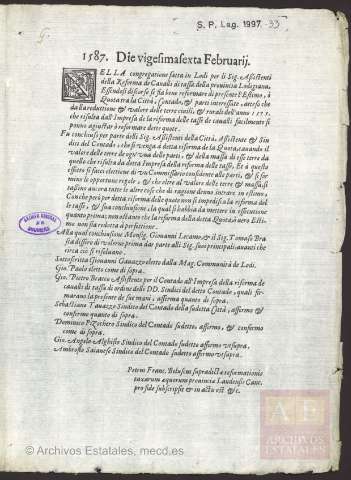 S. P. Leg. 1997 - 33
1587. Die vigesimasexta Februarij.
NELLA congregatione fatta in Lodi per li Sig. Assistenti
della Reforma de Caualli di tassa della prouincia Lodegiana.
Essendosi discorso si sia bene reformare di presente l'Estimo, ò
Quota tra la Città, Contado, & parti interessate, atteso che
dalla redduttione & valore delle terre ciuili, & rurali dell'anno 1575.
che risulta dall'Impresa de la reforma delle tasse de caualli facilmente si
ponno aggiustar & reformare dette quote.
Fu conchiuso per parte delli Sig. Assistenti della Città, Assistente & Sin
dici del Contado, che si venga à detta reforma de la Quota, cauando il
valore delle terre de ogni vna delle parti, & della massa di esse terre da
quello che risulta da detta Impresa della reforma delle tasse. Et à questo
effetto si facci elettione di vn Commissario confidente alle parti, & si for
mino le opportune regole, & che oltre al valore delle terre & massa si
tassino ancora tutte le altre cose che di ragione deono intrare in estimo.
Con che però per detta reforma delle quote non si impedisca la reforma del
le tasse, & sua conclusione, la qual si habbia da mettere in essecutione
quanto prima; non ostante che la reforma della detta Quota, ò vero Esti-
mo non sia redotta à perfettione.
Alla qual conchiusione Monsig. Giouanni Locamo, & il Sig. Tomaso Bra
sia dissero di volerne prima dar parte alli Sig. suoi principali auanti che
circa ciò si risoluano.
Sottoscritta Giouanni Gauazzo eletto dalla Mag. Communità de Lodi.
Gio. Paolo eletto come di sopra.
Gio. Pietro Bracco Assistente per il Contado all'Impresa della reforma de
caualli di tassa di ordine delli DD. Sindici del detto Contado, quali fir-
marano la presente de sue mani, afferma quanto di sopra.
Sebastiano Tauazzo Sindico del Contado della sudetta Città, affermo &
confirmo quanto di sopra.
Dominico Pozzobero Sindico del Contado sudetto, affirmo, & confirmo
come di sopra.
Gio. Angelo Alghisio Sindico del Contado sudetto affirmo vt supra.
Ambrosio Saianese Sindico del Contado sudetto affirmo vt supra.
Petrus Franc. Belusius supradictæ reformationis
taxarum equorum prouinciæ Laudensis Canc.
pro fide subscripsit & in actu est &c.
ARCHIVO GENERAL
DE
SIMANCAS
AE
ARCHIVOS
ESTATALES
© Archivos Estatales, mecd.es